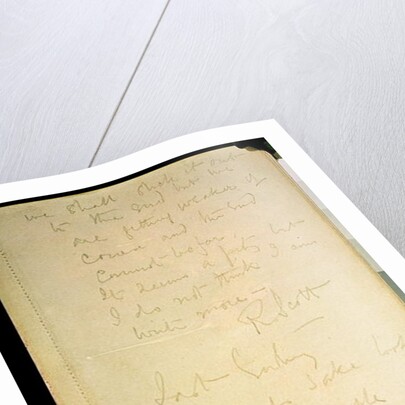 we shall stick it out
to the end but we
are getting weaker of
course and the end
cannot be far. It
seems a pity but
I do not think I can
write more –
R. Scott
Last Entry
sake look